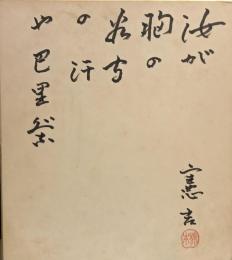 汝が
胸の
谷間
の汗
や巴里祭
憲吉